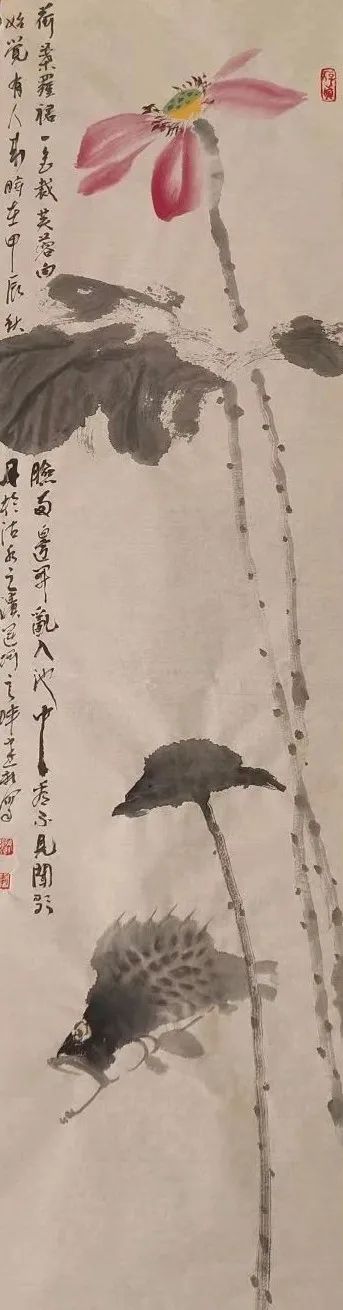 荷葉羅裙一色裁芙蓉向臉兩邊開亂入池中看不見聞歌
始覺有人來時在甲辰秋月於沽水之濱運河之畔寫